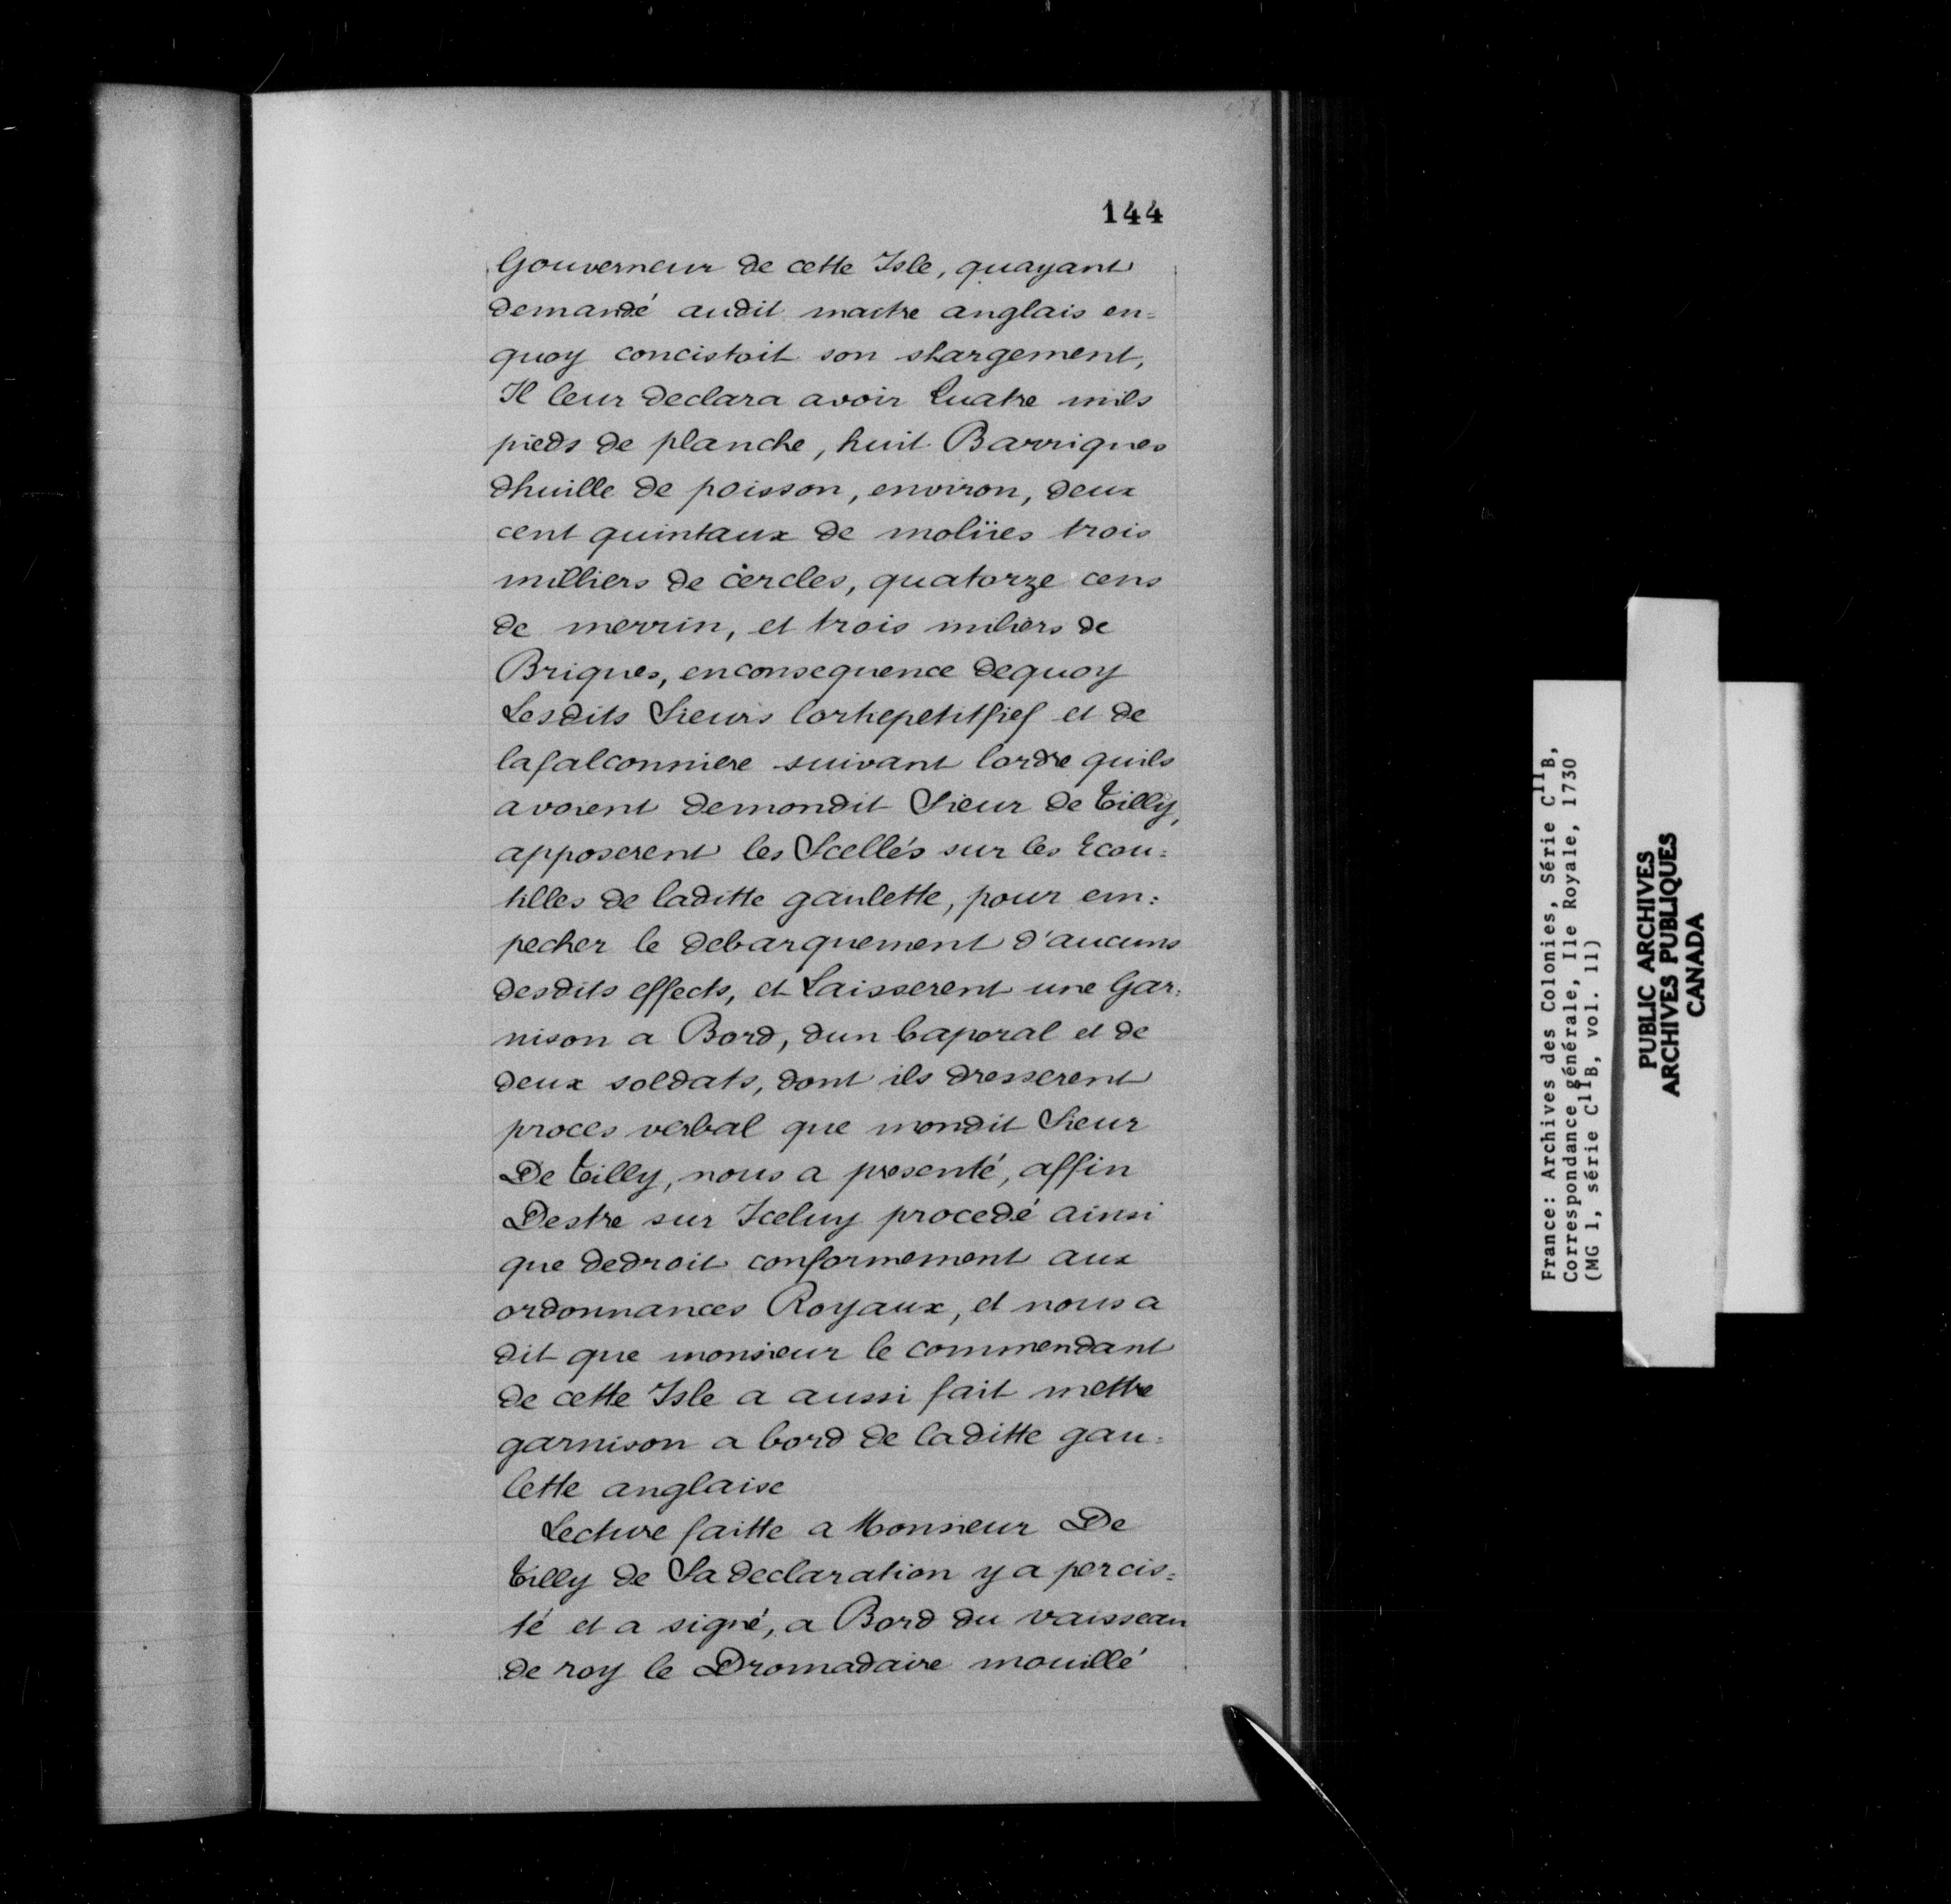 144
Gouverneur de cette Isle, quayant
demandé audit maitre anglais en=
quoy concistoit son shargement,
Il leur declara avoir Quatre mils
pieds de planche, huit Barriques
dhuille de poisson, environ, deux
cent quintaux de moliies trois
milliers de cercles, quatorze cens
de merrin, et trois miliers de
Briques, enconsequence dequoy
Lesdits Sieurs Cortiepetitfief et de
lafalconniere suivant lordre quils
avoient demondit Sieur de Tilly,
apposerent les Scellés sur les Ecou=
tilles de laditte gaulette, pour em=
pecher le debarquement d'aucuns
desdits effects, et Laisserent une Gar=
nison a Bord, dun Caporal et de
deux soldats, dont ils dresserent
proces verbal que mondit Sieur
De Tilly, nous a presenté, affin
Destre sur Iceluy procedé ainsi
que dedroit conformement aux
ordonnances Royaux, et nous a
dit que monsieur le commendant
de cette Isle a aussi fait mettre
garnison a bord de laditte gau=
lette anglaise
Lecture faitte a Monsieur De
Tilly de Sa declaration y a percis=
té et a signé, a Bord du vaisseau
de roy le Dromadaire mouillé
France: Archives des Colonies, Série C11B,
Correspondance générale, Ile Royale, 1730
(MG 1, série C11B, vol. 11)
PUBLIC ARCHIVES
ARCHIVES PUBLIQUES
CANADA